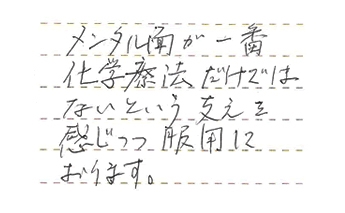 メンタル面が一番
化学療法だけでは
ないという支えを
感じつつ服用に
おります。